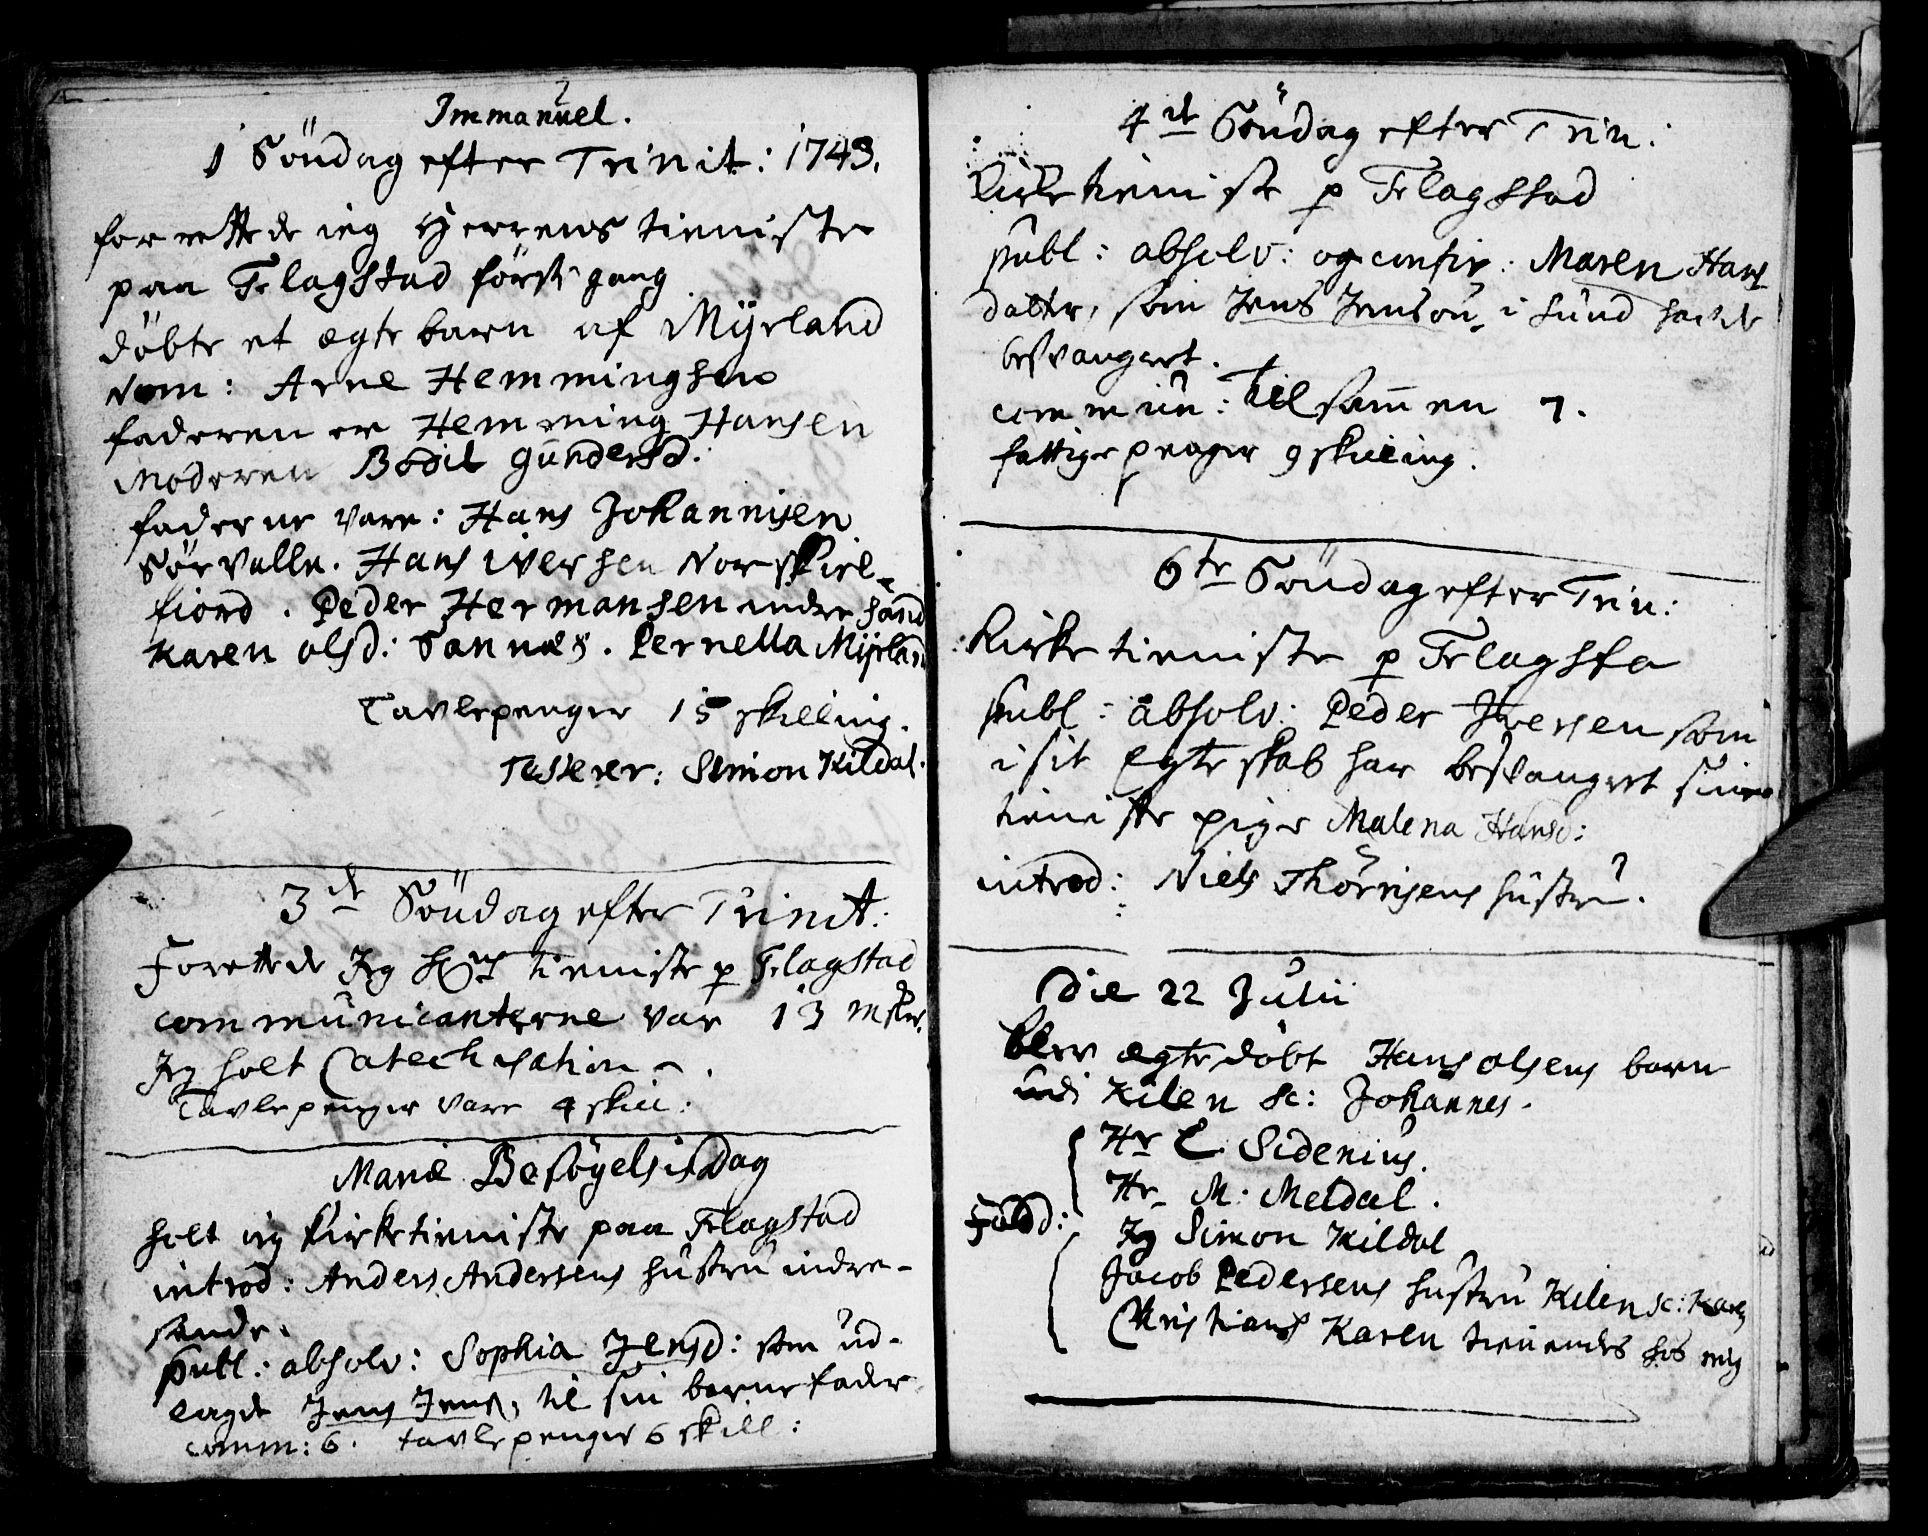 Immanuel.
1 Söndag efter Trinit: 1743.
forrettede ieg Herrens tieniste
paa Flagstad förste gang
döbte et ægte barn af Myrland
Nom: Arne Hemmingsen
faderen er Hemming Hansen
Moderen Bodil Gundersd:
fadderne vare: Hans Johannisen
Sörvalle. Hans Iversen Norskiel-
fiord. Peder Hermansen indre sand
Karen olsd: Sannes. Pernella Myrland
Tavlepenger 15 skilling.
Testerer: Simon Kildal.
3de Söndag efter Trinit:
Forettede Jeg tieniste p Flagstad
communicanterne var 13
Jeg holt Catechisation.
Tavlepenger vare 4 skill:
Mariæ Besögelsis Dag
holt ieg kirketieniste paa Flagstad
introd: Anders Andersens hustru indre-
sande.
publ: absolv: Sophia Jensd: som ud-
lagde Jens Jens, til sin barnefader
comm: 6. tavlepenger 6 skill:
4de Söndag efter Trin:
Kirketieniste p Flagstad
publ: absolv: og confir: Maren Hans
datter, som Jens Jensön i Sund hafde
besvangret.
commun: tilsammen 7.
fattige penger 9 skilling.
6te Söndag efter Trin:
Kirketieniste p Flagsta
publ: absolv: Peder Iversen som
i sit Egteskab har besvangret sin
tieniste pige Malena Hansd:
introd: Niels Thörrisens hustru.
Die 22 Julii
blev ægte döbt Hans olsens barn
udi Kilen sc: Johannes.
Hr C. Sidenius.
Hr. M: Meldal.
Fadd:
Jeg Simon Kildal
Jacob Pedersens hustru Kilen sc: Karen
Christians Karen tienendes hos mig